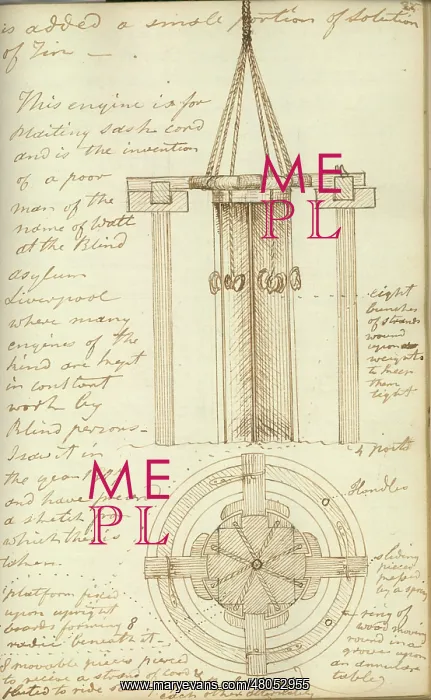 is added a small portion of solution
of Tin —
This engine is for
Plaiting Sash cord
and is the invention
of a poor
man of the
name of Watt
at the Blind
asylum
Liverpool
where many
engines of the
kind are kept
in constant
work by
Blind persons-
I saw it in
the year
and have
a sketch
which this is
taken.
platform fixed
upon upright
boards forming 8
radii beneath it-
8 movable pieces pierced
to receive a strand of cord &
to ride
each other
eight
bunches
of strands
wound
upon
weights
to keep
them
tight
4 posts
Handles
sliding
pieces
by a spring
ring of
wood moving
round in a
groove upon
an annular
table
ME
PL
ME
PL
www.maryevans.com/48052955